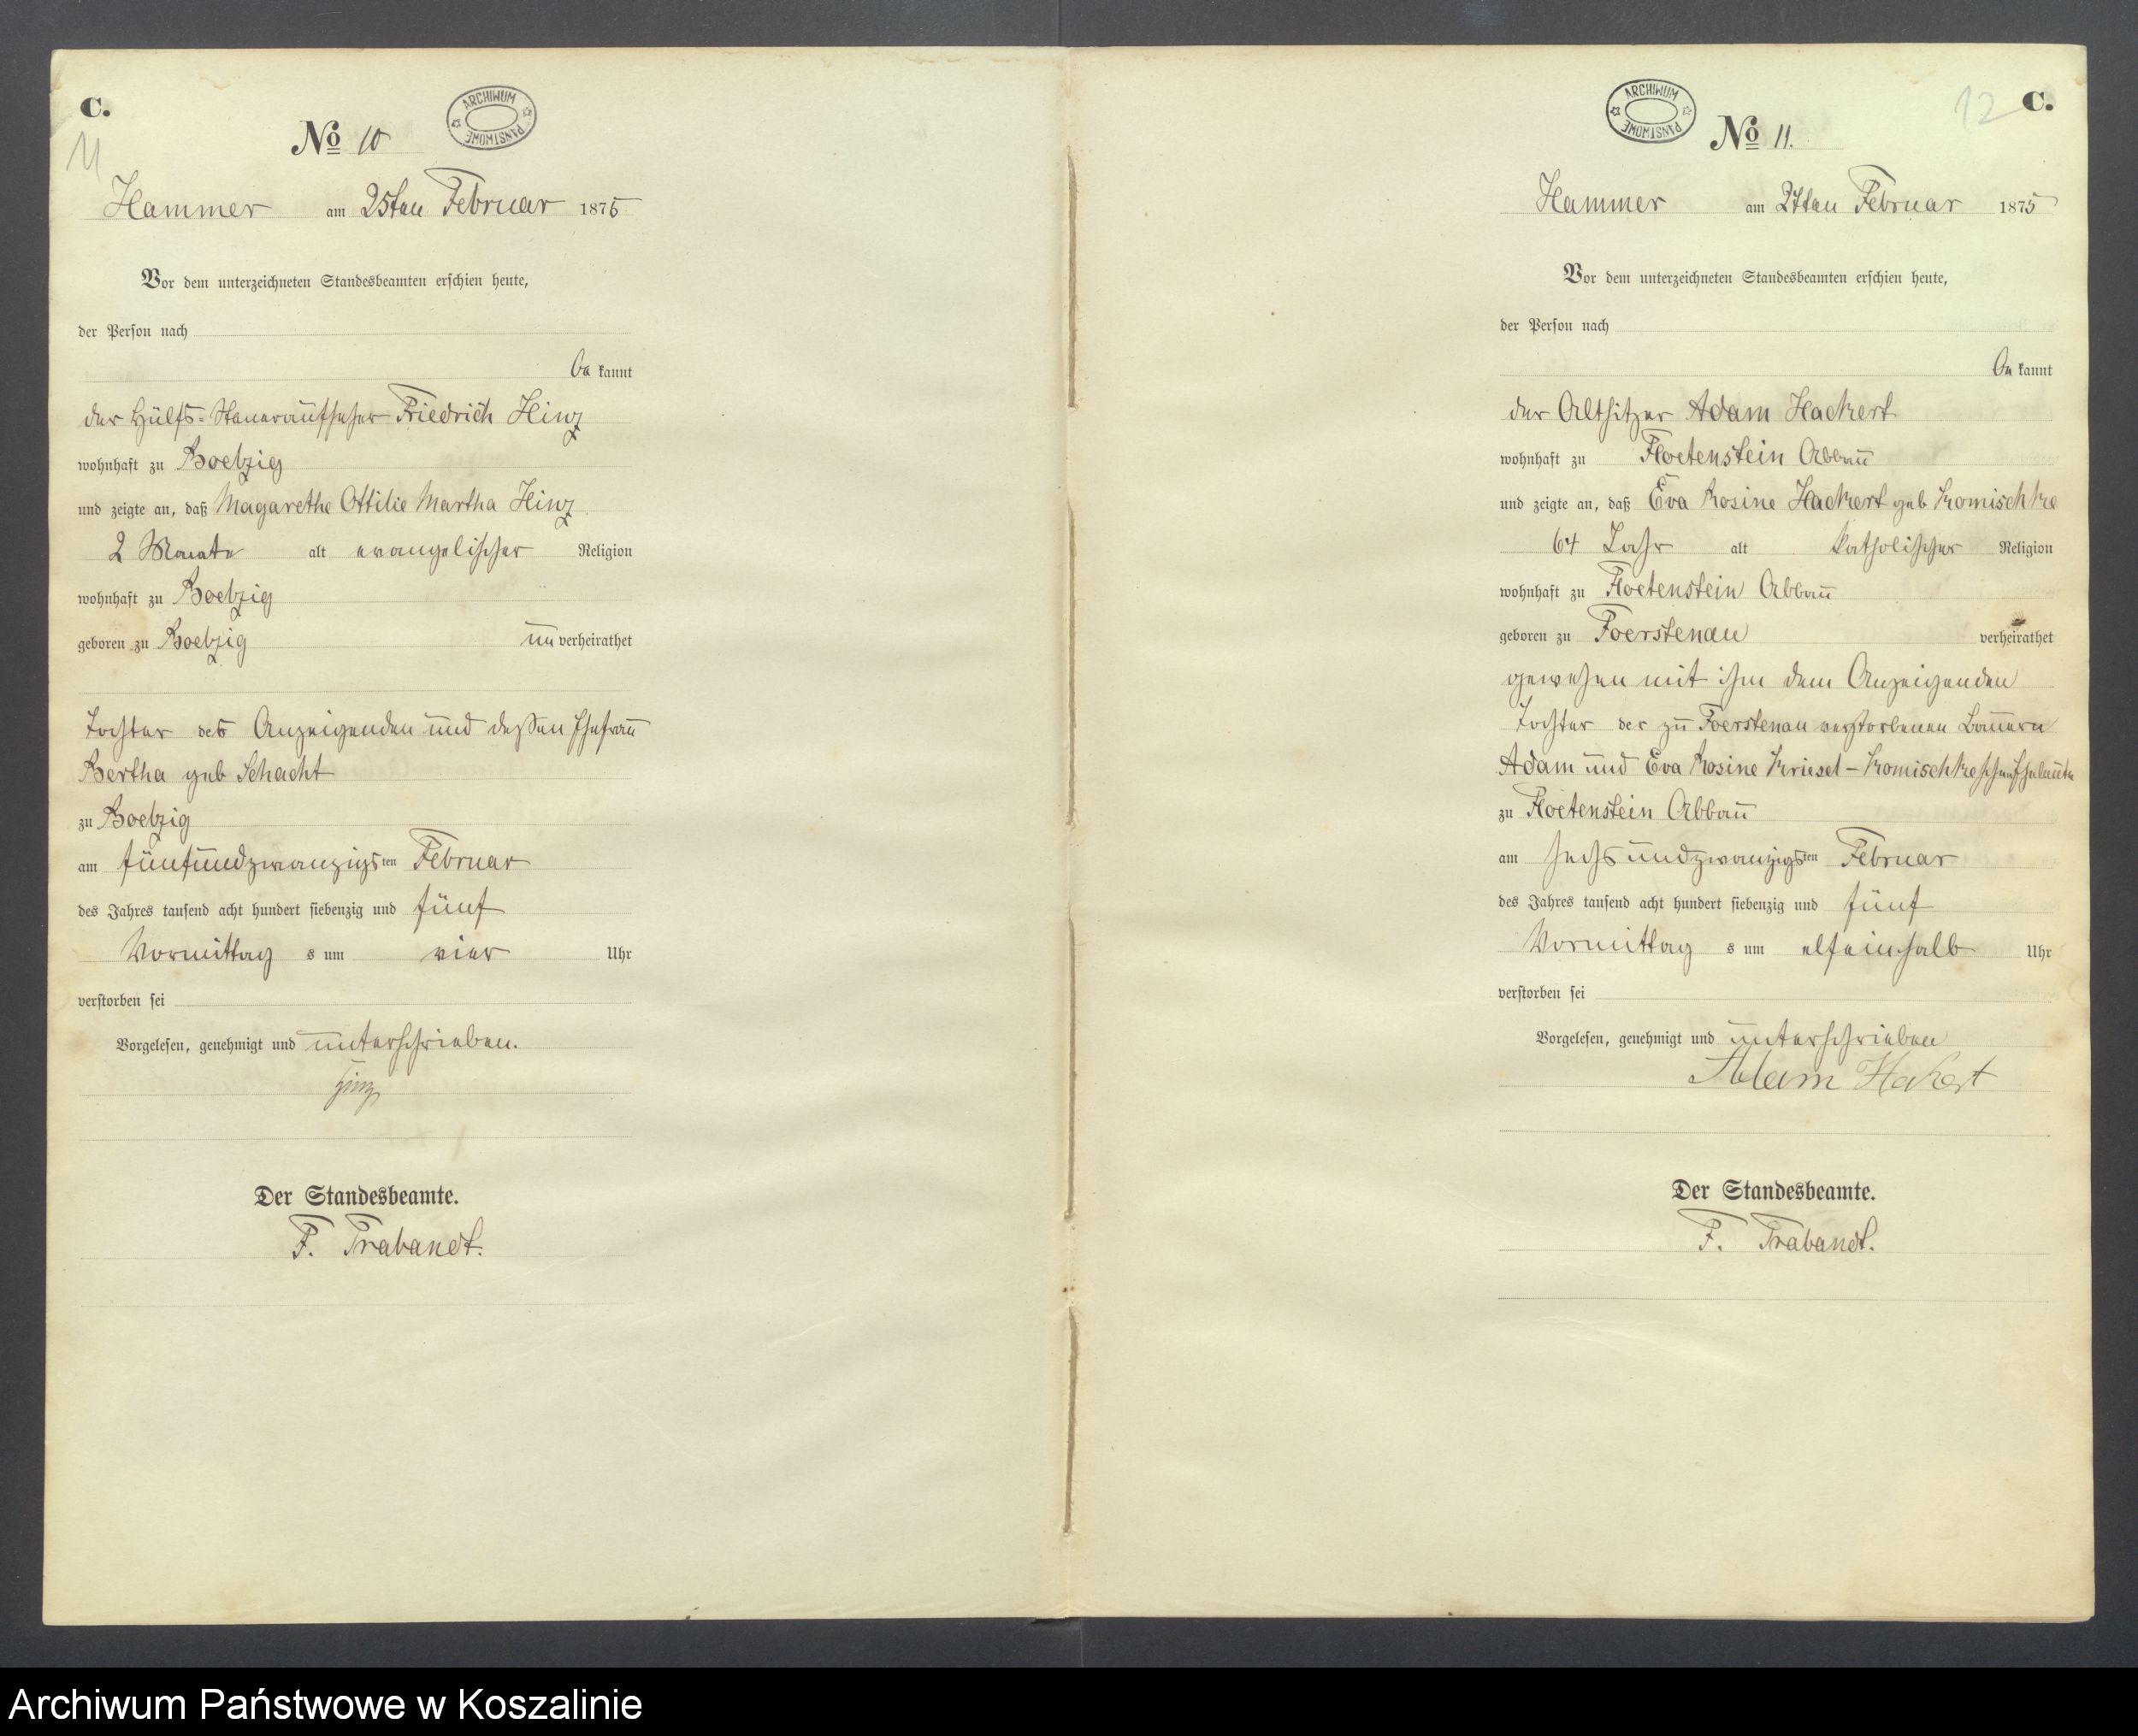 C.
11
ARCHIWUM PAŃSTWOWE
No 10
Hammer am 25ten Februar 1875
Vor dem unterzeichneten Standesbeamten erschien heute,
der Person nach
be kannt
der Hülfs-Steueraufseher Friedrich Hinz
wohnhaft zu Boelzig
und zeigte an, daß Magarethe Ottilie Martha Hinz
2 Monate alt evangelischer Religion
wohnhaft zu Boelzig
geboren zu Boelzig un verheirathet
Tochter des Anzeigenden und dessen Ehefrau
Bertha geb Schacht
zu Boelzig
am fünfundzwanzigs ten Februar
des Jahres tausend acht hundert siebenzig und fünf
Vormittag s um vier Uhr
verstorben sei
Vorgelesen, genehmigt und unterschrieben.
Hinz
Der Standesbeamte.
F. Trabandt.
12
C.
ARCHIWUM PAŃSTWOWE
No 11.
Hammer am 27ten Februar 1875
Vor dem unterzeichneten Standesbeamten erschien heute,
der Person nach
be kannt
der Altsitzer Adam Hackert
wohnhaft zu Floetenstein Abbau
und zeigte an, daß Eva Rosine Hackert geb Komischke
64 Jahr alt katholischer Religion
wohnhaft zu Floetenstein Abbau
geboren zu Foerstenau verheirathet
gewesen mit ihm dem Anzeigenden
Tochter der zu Foerstenau verstorbenen Bauern
Adam und Eva Rosine Kriesel-Komischkeschen Eheleute
zu Floetenstein Abbau
am sechsundzwanzigs ten Februar
des Jahres tausend acht hundert siebenzig und fünf
Vormittag s um elfeinhalb Uhr
verstorben sei
Vorgelesen, genehmigt und unterschrieben
Adam Hakert
Der Standesbeamte.
F. Trabandt.
Archiwum Państwowe w Koszalinie